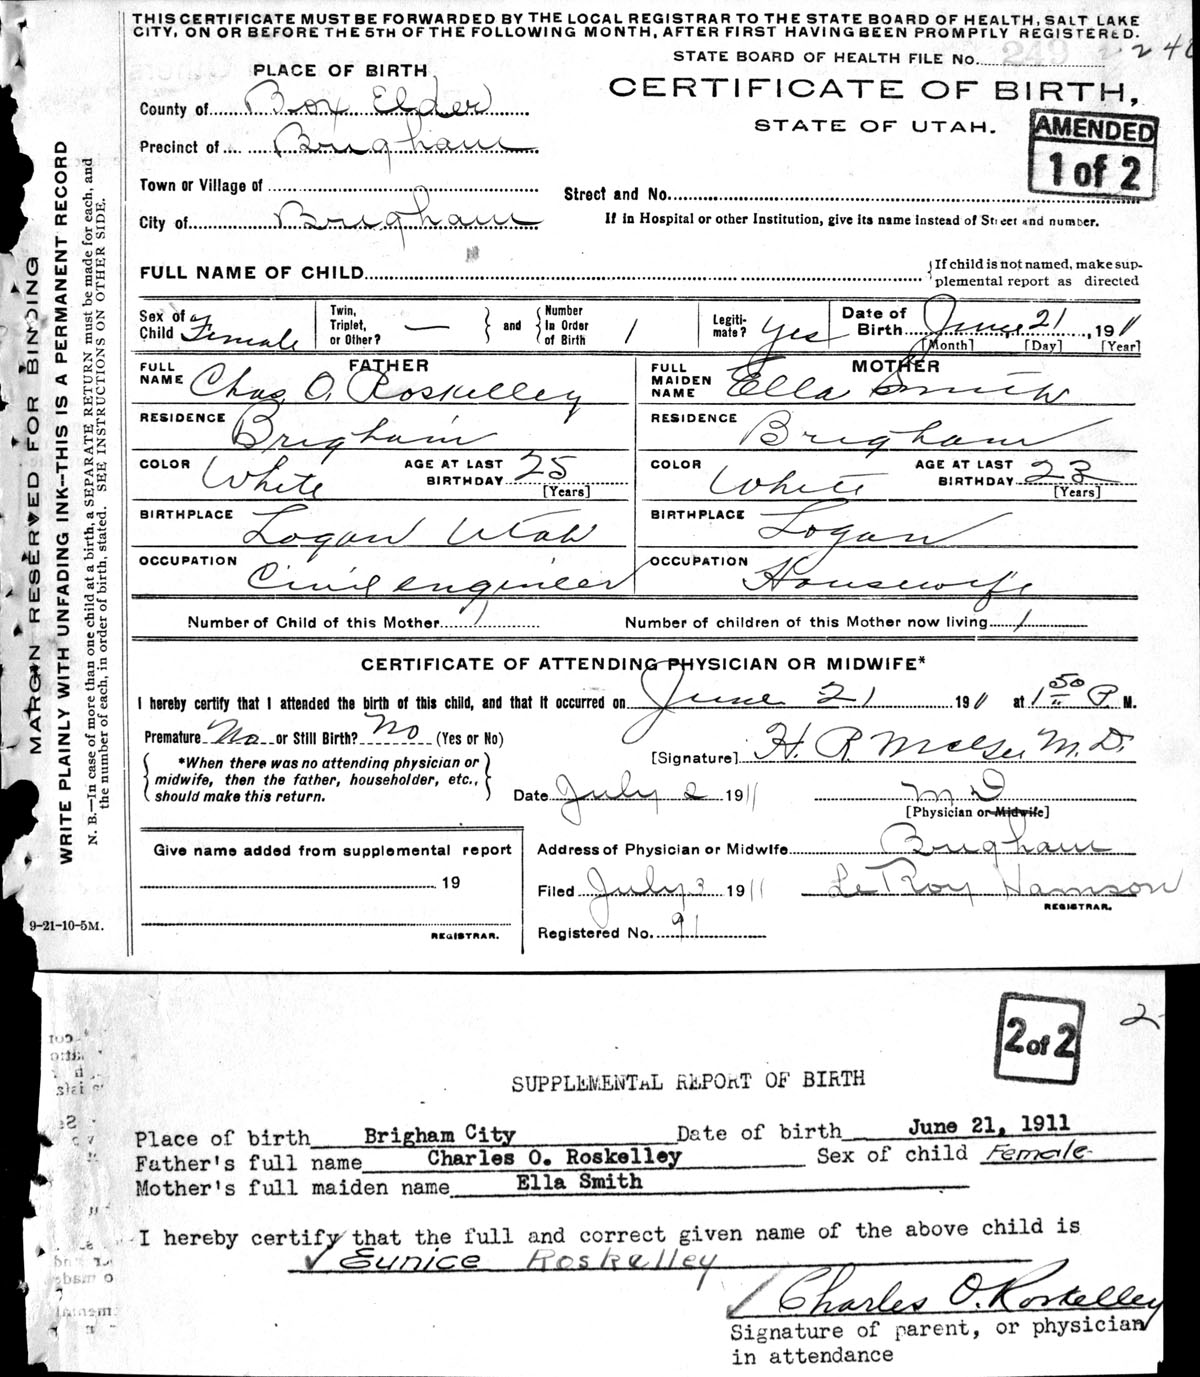 THIS CERTIFICATE MUST BE FORWARDED BY THE LOCAL REGISTRAR TO THE STATE BOARD OF HEALTH, SALT LAKE
CITY, ON OR BEFORE THE 5TH OF THE FOLLOWING MONTH, AFTER FIRST HAVING BEEN PROMPTLY REGISTERED.
STATE BOARD OF HEALTH FILE No. 249
PLACE OF BIRTH
CERTIFICATE OF BIRTH,
STATE OF UTAH.
AMENDED
1 of 2
County of Box Elder
Precinct of Brigham
Town or Village of
Street and No.
City of Brigham
If in Hospital or other Institution, give its name instead of Street and number.
FULL NAME OF CHILD
If child is not named, make sup-
plemental report as directed
Sex of Child Female
Twin, Triplet, or Other? —
and
Number In Order of Birth 1
Legiti-mate? Yes
Date of Birth June 21, 1911
[Month] [Day] [Year]
FATHER
FULL NAME Chas. O. Roskelley
MOTHER
FULL MAIDEN NAME Ella Smith
RESIDENCE Brigham
RESIDENCE Brigham
COLOR White AGE AT LAST BIRTHDAY 25 [Years]
COLOR White AGE AT LAST BIRTHDAY 23 [Years]
BIRTHPLACE Logan Utah
BIRTHPLACE Logan
OCCUPATION Civil engineer
OCCUPATION Housewife
Number of Child of this Mother 1
Number of children of this Mother now living 1
CERTIFICATE OF ATTENDING PHYSICIAN OR MIDWIFE*
I hereby certify that I attended the birth of this child, and that it occurred on June 21 1911 at 1 50 P. M.
Premature No or Still Birth? No (Yes or No)
[Signature] H. P. M.D.
*When there was no attending physician or
midwife, then the father, householder, etc.,
should make this return.
Date July 2 1911
M D
[Physician or Midwife]
Give name added from supplemental report
Address of Physician or Midwife Brigham
19
Filed July 3 1911 LeRoy
REGISTRAR.
REGISTRAR.
Registered No. 91
9-21-10-5M.
MARGIN RESERVED FOR BINDING
WRITE PLAINLY WITH UNFADING INK--THIS IS A PERMANENT RECORD
N. B.—In case of more than one child at a birth, a SEPARATE RETURN must be made for each, and
the number of each, in order of birth, stated. SEE INSTRUCTIONS ON OTHER SIDE.
2 of 2
2
SUPPLEMENTAL REPORT OF BIRTH
Place of birth Brigham City Date of birth June 21, 1911
Father's full name Charles O. Roskelley Sex of child Female
Mother's full maiden name Ella Smith
I hereby certify that the full and correct given name of the above child is
Eunice Roskelley
Charles O. Roskelley
Signature of parent, or physician
in attendance